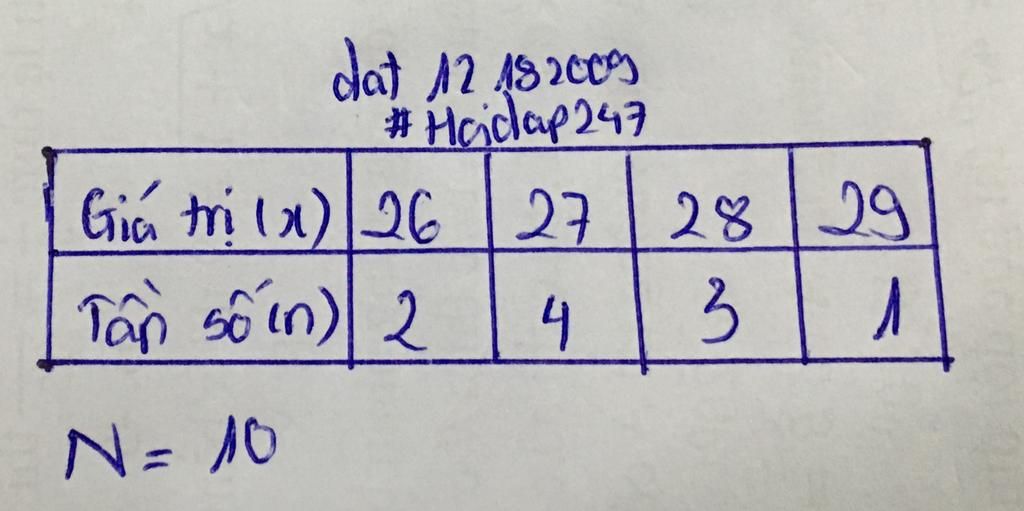 dat 12 182009
#Hoidap247
Giá trị (x) 26 27 28 29
Tần số (n) 2 4 3 1
N = 10